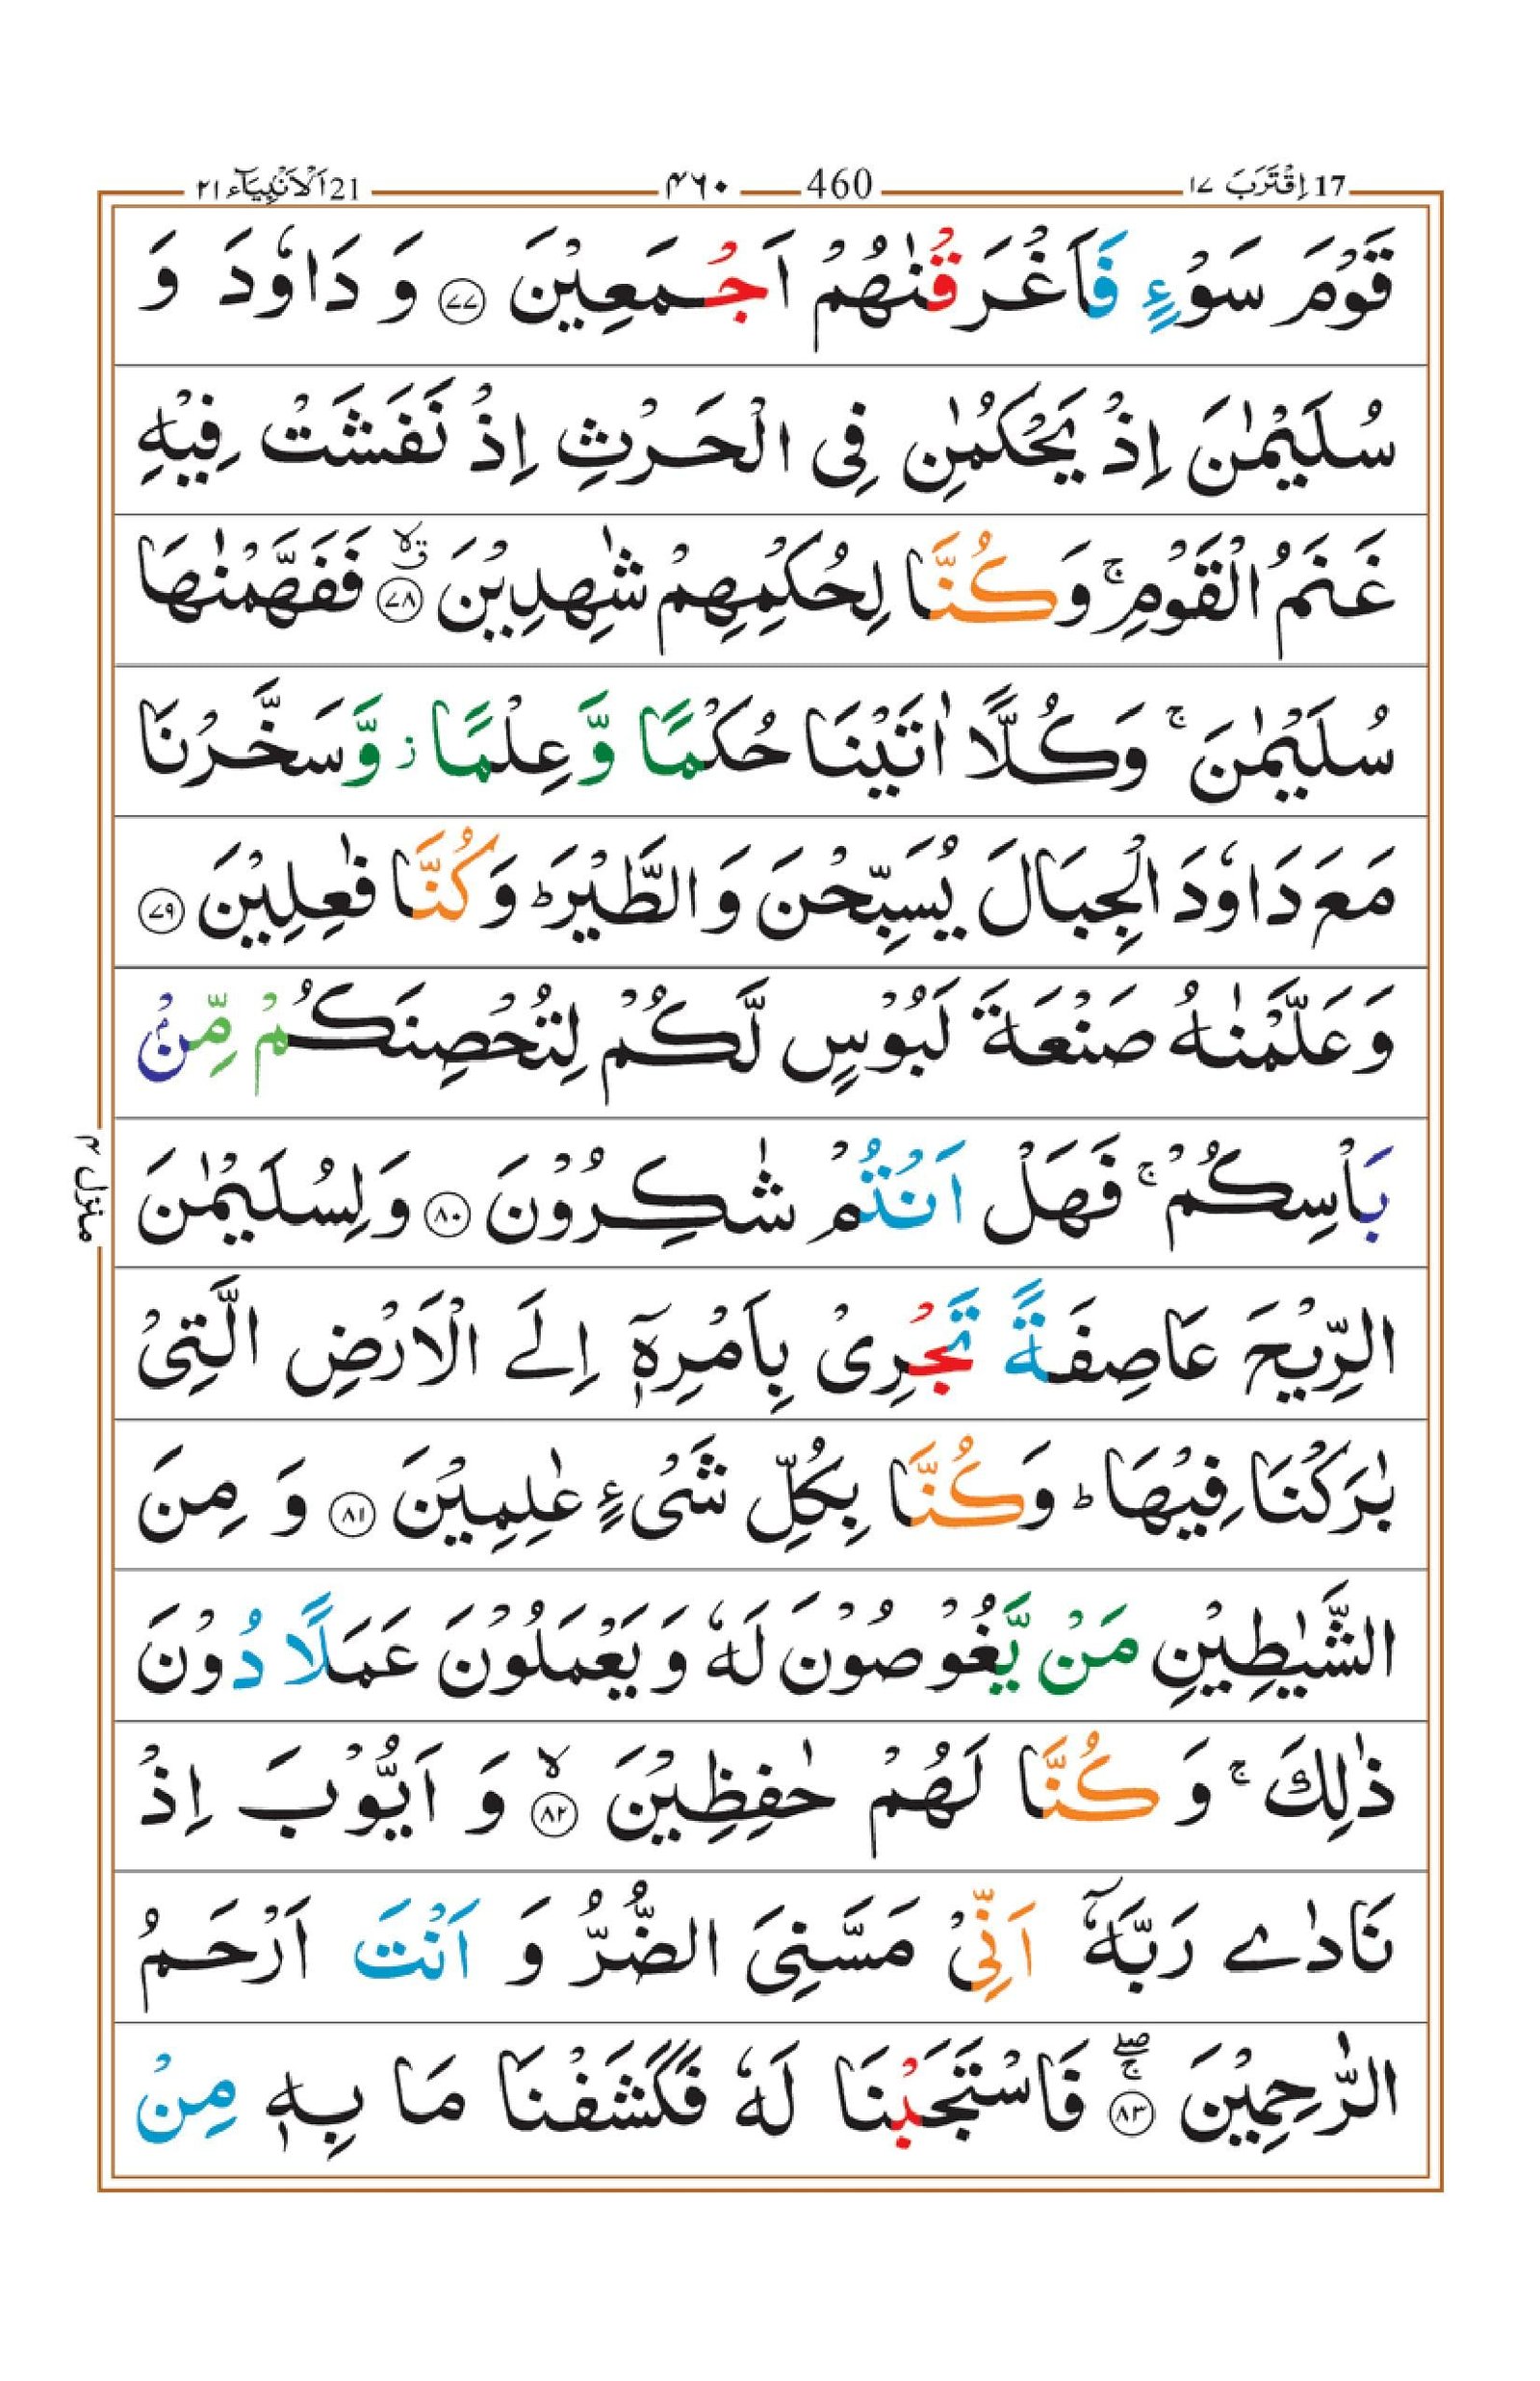 17 اِقْتَرَبَ ١٧ 460 ۴۶۰ 21 اَلْاَنْۢبِيَآء ٢١
قَوْمَ سَوْءٍ فَاَغْرَقْنٰهُمْ اَجْمَعِيْنَ ۝۷۷ وَ دَاوٗدَ وَ
سُلَيْمٰنَ اِذْ يَحْكُمٰنِ فِى الْحَرْثِ اِذْ نَفَشَتْ فِيْهِ
غَنَمُ الْقَوْمِ ۚ وَكُنَّا لِحُكْمِهِمْ شٰهِدِيْنَ ۝۷۸ ۙق فَفَهَّمْنٰهَا
سُلَيْمٰنَ ۚ وَكُلًّا اٰتَيْنَا حُكْمًا وَّعِلْمًا ز وَّسَخَّرْنَا
مَعَ دَاوٗدَ الْجِبَالَ يُسَبِّحْنَ وَالطَّيْرَ ؕ وَكُنَّا فٰعِلِيْنَ ۝۷۹
وَعَلَّمْنٰهُ صَنْعَةَ لَبُوْسٍ لَّكُمْ لِتُحْصِنَكُمْ مِّنْۢ
بَاْسِكُمْ ۚ فَهَلْ اَنْتُمْ شٰكِرُوْنَ ۝۸۰ وَلِسُلَيْمٰنَ
الرِّيْحَ عَاصِفَةً تَجْرِىْ بِاَمْرِهٖۤ اِلَى الْاَرْضِ الَّتِىْ
بٰرَكْنَا فِيْهَا ؕ وَكُنَّا بِكُلِّ شَىْءٍ عٰلِمِيْنَ ۝۸۱ وَ مِنَ
الشَّيٰطِيْنِ مَنْ يَّغُوْصُوْنَ لَهٗ وَيَعْمَلُوْنَ عَمَلًا دُوْنَ
ذٰلِكَ ۚ وَكُنَّا لَهُمْ حٰفِظِيْنَ ۝۸۲ ۙ وَ اَيُّوْبَ اِذْ
نَادٰى رَبَّهٗۤ اَنِّىْ مَسَّنِىَ الضُّرُّ وَ اَنْتَ اَرْحَمُ
الرّٰحِمِيْنَ ۝۸۳ ۚۖ فَاسْتَجَبْنَا لَهٗ فَكَشَفْنَا مَا بِهٖ مِنْ
منزل ۴